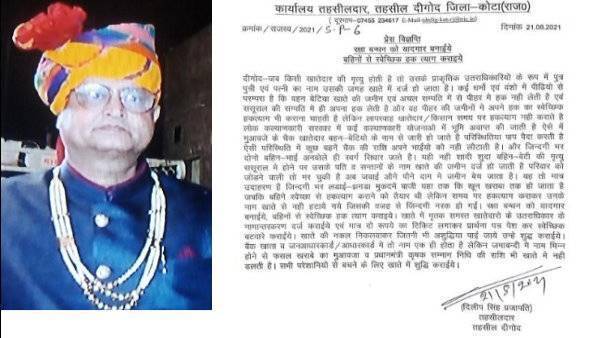 कार्यालय तहसीलदार, तहसील दीगोद जिला–कोटा(राज0)
( दूरभाष-07455 234617 E-Mail
क्रमांक / राजस्व / 2021 / S.P.6 दिनांक 21.08.2021
प्रेस विज्ञप्ति
रक्षा बन्धन को यादगार बनाईये
बहिनों से स्वैच्छिक हक त्याग कराइये
दीगोद–जब किसी खातेदार की मृत्यु होती है तो उसके प्राकृतिक उतराधिकारियो के रूप में पुत्र
पुत्री एवं पत्नी का नाम उसकी जगह खाते में दर्ज हो जाता है। कई धर्मो एवं वंशो में पीढियो से
परम्परा है कि बहन बेटिया खाते की जमीन एवं अचल सम्पति में से पीहर मे हक नही लेती है एवं
ससुराल की सम्पति मे ही अपना हक लेती है और वह पीहर की जमीनी मे अपने हक का स्वैच्छिक
हकत्याग भी कराना चाहती है लेकिन लापरवाह खातेदार / किसान समय पर हकत्याग नही कराते है
लोक कल्याणकारी सरकार में कई कल्याणकारी योजनाओ में भूमि अवाप्त की जाती है। ऐसे में
मुआवजे के चैक खातेदार बहन–बेटियो के नाम से जारी हो जाते है परिस्थितिया पाप पैदा करती है
ऐसी परिस्थिति में कुछ बहनें चैक की राशि अपने भाईयो को नही लौटाती है। और जिन्दगी भर
दोनो बहिन–भाई अनबोले ही स्वर्ग सिधार जाते है। यही नही शादी शुदा बहिन–बेटी की मृत्यु
ससुराल मे होने पर उसके पति व सन्तानों के नाम खाते की जमीन दर्ज हो जाती है परिवार को
जोडने वाली तो मर चुकी है अब जवाई ओने पौने दाम मे जमीन बेच जाता है। यह तो मात्र
उदाहरण है जिन्दगी भर लडाई–झगडा मुकदमे बाजी यहा तक कि खून खराबा तक हो जाता है
जबकि बहिने स्वेच्छा से हकत्याग कराने को तैयार थी लेकिन समय पर हकत्याग कराकर उनके
नाम खाते से नही हटाये गये जिसकी वजह से जिन्दगी नरक हो गई। रक्षा बन्धन को यादगार
बनाईये, बहिनों से स्वैच्छिक हक त्याग कराइये। खाते मे मृतक समस्त खातेदारो के उतराधिकार के
नामान्तरकरण दर्ज कराईये एवं मात्र दो रूपये का टिकिट लगाकर प्रार्थना पत्र पेश कर स्वैच्छिक
बटवारे कराईये। खाते की नकल निकलवाकर जितनी भी अशुद्धिया पाई जाये उन्हे शुद्ध कराईये।
बैंक खाता व जनआधारकार्ड / आधारकार्ड मे तो नाम एक ही होता है लेकिन जमाबन्दी मे नाम भिन्न
होने से फसल खराबे का मुआवजा व प्रधानमंत्री कृषक सम्मान निधि की राशि भी खाते मे नही
डलती है। सभी परेशानियो से बचने के लिए खाते में शुद्धि कराईये।
(दिलीप सिंह प्रजापति)
तहसीलदार
तहसील दीगोद